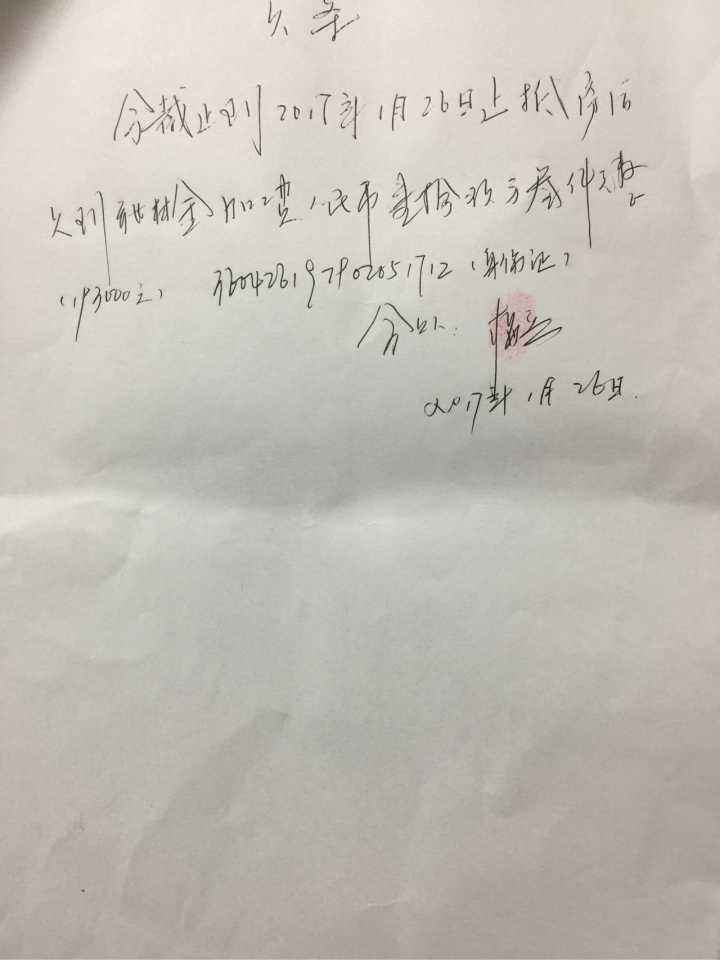 欠条
今截止到2017年1月26日止抵
欠刘 加工费人民币壹拾玖万叁仟元整
(193000元) 360426197902051712 (身份证)
2017年1月26日.